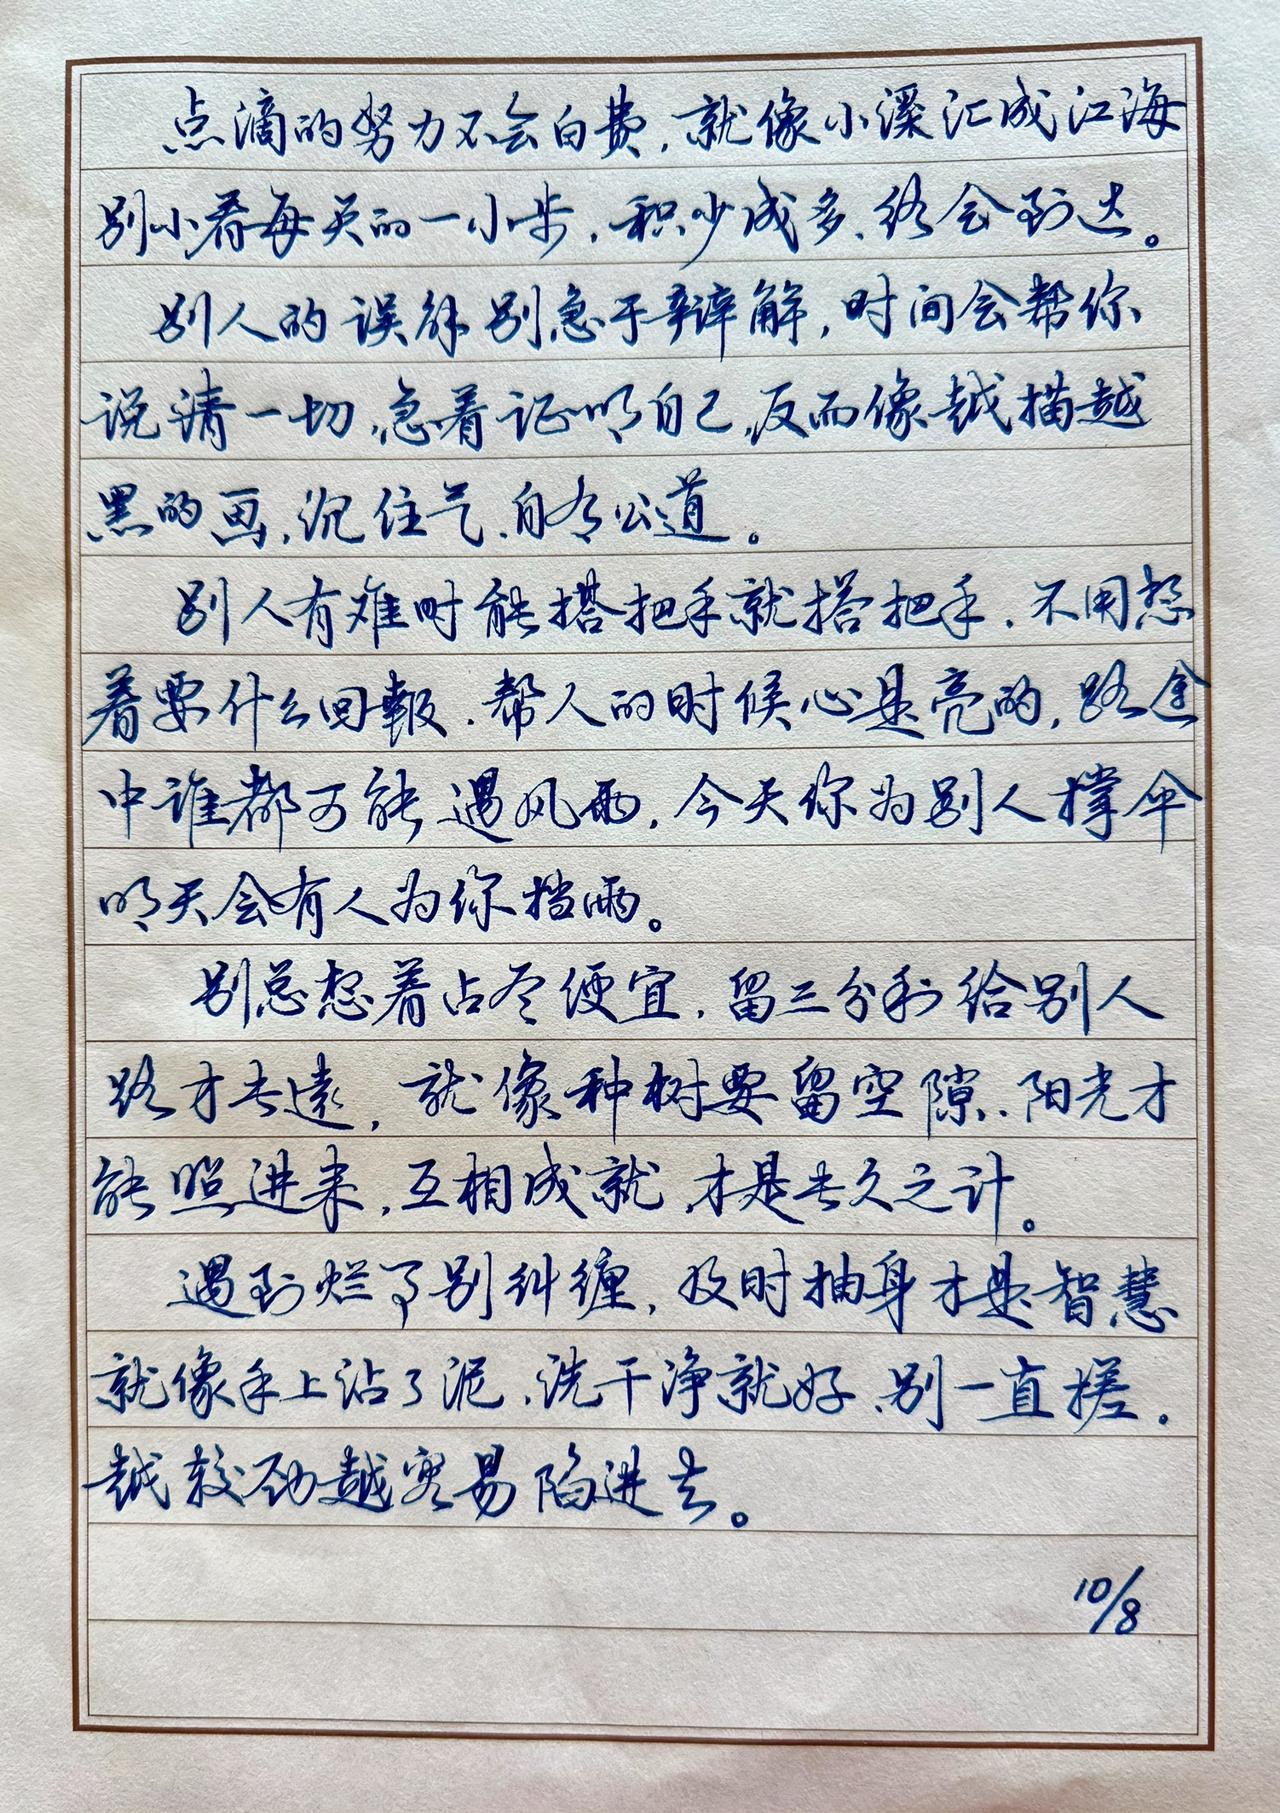 点滴的努力不会白费，就像小溪汇成江海
别小看每天的一小步，积少成多、终会到达。
别人的误解别急于辩解，时间会帮你
说清一切，急着证明自己，反而像越描越
黑的画，沉住气、自有公道。
别人有难时能搭把手就搭把手，不用想
着要什么回報，帮人的时候心是亮的，路途
中谁都可能遇风雨，今天你为别人撑伞
明天会有人为你挡雨。
别总想着占尽便宜，留三分利给别人
路才长远，就像种树要留空隙，阳光才
能照进来，互相成就，才是长久之计。
遇到烂事别纠缠，及时抽身才是智慧
就像手上沾了泥、洗干净就好、别一直搓，
越较劲越容易陷进去。
10/8